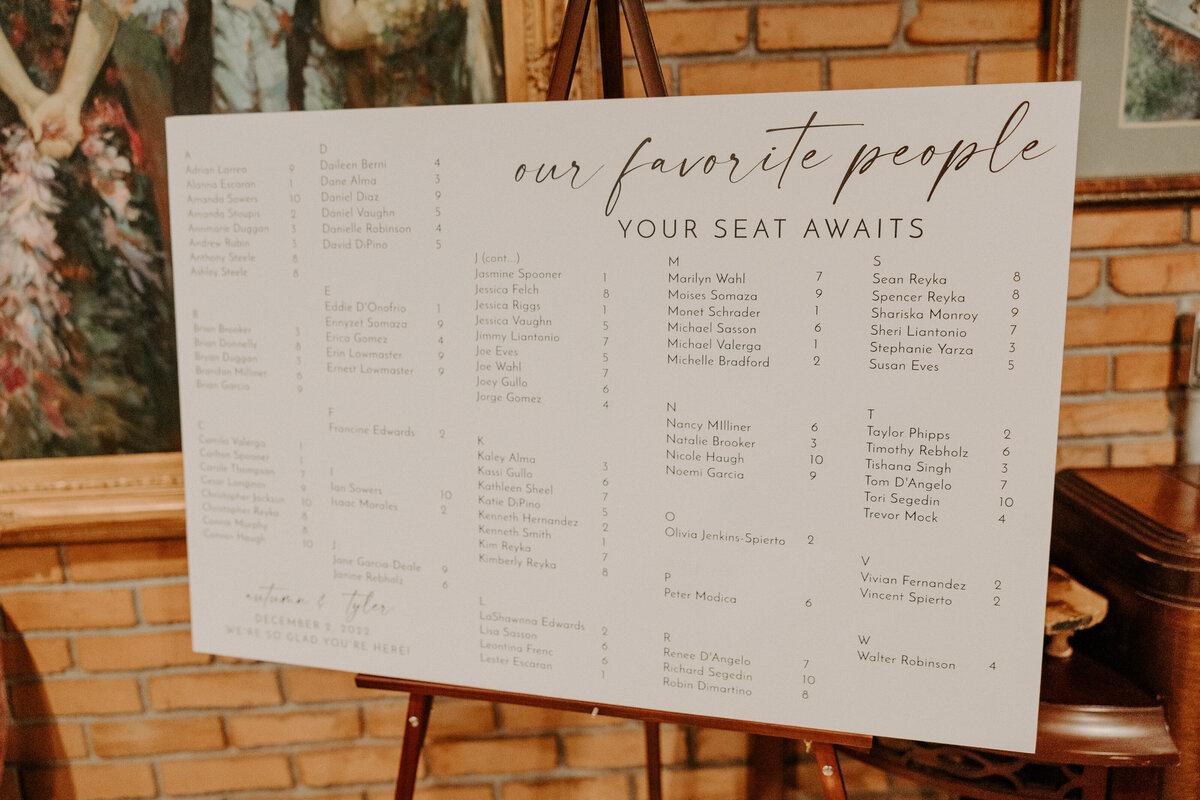 our favorite people
YOUR SEAT AWAITS
A
Adrian Larrea 9
Alanna Escaran 1
Amanda Sowers 10
Amanda Stoupis 2
Annmarie Duggan 3
Andrew Rubin 3
Anthony Steele 8
Ashley Steele 8
B
Brian Brooker 3
Brian Donnelly 8
Bryan Duggan 3
Brandon Milliner 6
Brian Garcia 9
C
Camila Valerga 1
Carlton Spooner
Carole Thompson 7
Cesar Longman 9
Christopher Jackson 10
Christopher Reyka 8
Connie Murphy 8
Connor Haugh 10
D
Daileen Berni 4
Dane Alma 3
Daniel Diaz 9
Daniel Vaughn 5
Danielle Robinson 4
David DiPino 5
E
Eddie D'Onofrio 1
Ennyzet Somaza 9
Erica Gomez 4
Erin Lowmaster 9
Ernest Lowmaster 9
F
Francine Edwards 2
I
Ian Sowers 10
Isaac Morales 2
J
Jane Garcia-Deale 9
Janine Rebholz 6
J (cont...)
Jasmine Spooner 1
Jessica Felch 8
Jessica Riggs 1
Jessica Vaughn 5
Jimmy Liantonio 7
Joe Eves 5
Joe Wahl 7
Joey Gullo 6
Jorge Gomez 4
K
Kaley Alma 3
Kassi Gullo 6
Kathleen Sheel 7
Katie DiPino 5
Kenneth Hernandez 2
Kenneth Smith 1
Kim Reyka 7
Kimberly Reyka 8
L
LaShawnna Edwards 2
Lisa Sasson 6
Leontina Frenc 6
Lester Escaran 1
M
Marilyn Wahl 7
Moises Somaza 9
Monet Schrader 1
Michael Sasson 6
Michael Valerga 1
Michelle Bradford 2
N
Nancy MIlliner 6
Natalie Brooker 3
Nicole Haugh 10
Noemi Garcia 9
O
Olivia Jenkins-Spierto 2
P
Peter Modica 6
R
Renee D'Angelo 7
Richard Segedin 10
Robin Dimartino 8
S
Sean Reyka 8
Spencer Reyka 8
Shariska Monroy 9
Sheri Liantonio 7
Stephanie Yarza 3
Susan Eves 5
T
Taylor Phipps 2
Timothy Rebholz 6
Tishana Singh 3
Tom D'Angelo 7
Tori Segedin 10
Trevor Mock 4
V
Vivian Fernandez 2
Vincent Spierto 2
W
Walter Robinson 4
autumn & Tyler
DECEMBER 2, 2022
WE'RE SO GLAD YOU'RE HERE!